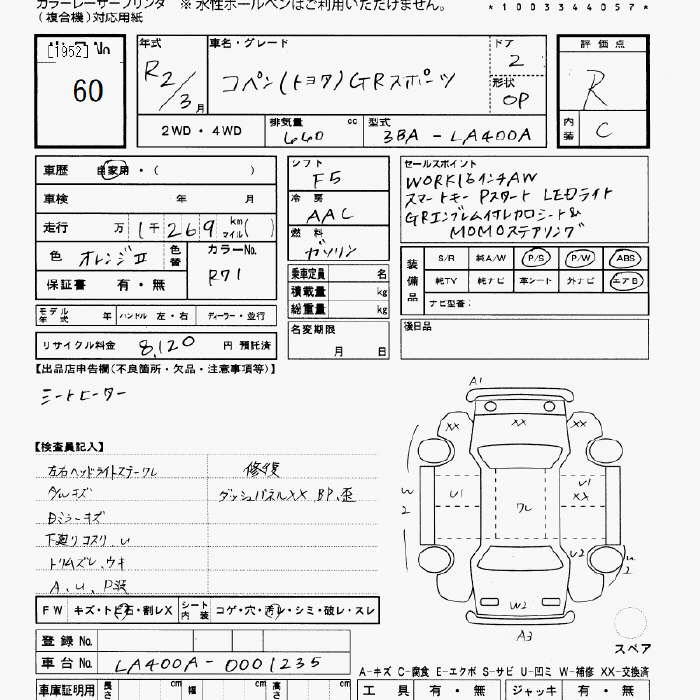 カラーレーザープリンタ ※ 水性ボールペンはご利用いただけません。
(複合機)対応用紙
*1003344057*
[1952]
60
年式 R2/3月
車名・グレード コペン(トヨタ)GRスポーツ
ドア 2
形状 OP
評価点 R
内装 C
2WD・4WD
排気量 660 cc
型式 3BA-LA400A
車歴 自家用・( )
車検 年 月
走行 万 1千269 km マイル( )
色 オレンジⅡ 色替
カラーNo. R71
保証書 有・無
シフト F5
冷房 AAC
燃料 ガソリン
乗車定員 名
積載量 kg
総重量 kg
セールスポイント
WORK16インチAW
スマートキー Pスタート LEDライト
GRエンブレム付レカロシート&
MOMOステアリング
装備品
S/R 純A/W P/S P/W ABS
純TV 純ナビ 革シート 外ナビ エアB
ナビ型番:
モデル年式 年 ハンドル 左・右 ディーラー・並行
名変期限 月 日
後日品
リサイクル料金 8,120 円 預託済
【出品店申告欄(不良箇所・欠品・注意事項等)】
シートヒーター
【検査員記入】
左右ヘッドライトステーワレ 修復
A/Wキズ ダッシュパネルXX BP、歪
Dミラーキズ
下廻りコスリ、U
トリムズレ、ウキ
A、U、P装
FW キズ・トビ石・割レX
シート内装 コゲ・穴・汚レ・シミ・破レ・スレ
登録 No.
車台 No. LA400A-0001235
車庫証明用 長さ cm 幅 cm 高さ cm
A1
XX XX XX
W2
U1
ワレ
U1
XX
U2
W2
W2
A3
スペア
A-キズ C-腐食 E-エクボ S-サビ U-凹ミ W-補修 XX-交換済
工具 有・無 ジャッキ 有・無